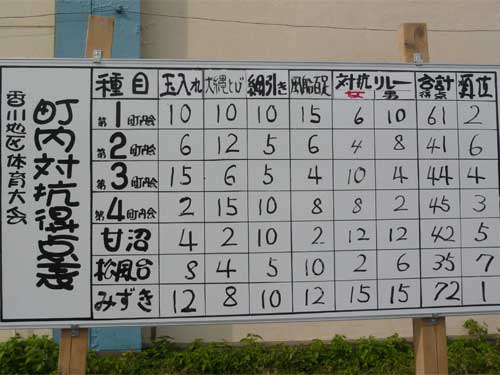 香川地区体育大会
町内対抗得点表
種目 玉入れ 大縄とび 綱引き 風船百足 対抗女 リレー男 合計得点 順位
第1町内会 10 10 10 15 6 10 61 2
第2町内会 6 12 5 6 4 8 41 6
第3町内会 15 6 5 4 10 4 44 4
第4町内会 2 15 10 8 8 2 45 3
甘沼 4 2 10 2 12 12 42 5
松風台 8 4 5 10 2 6 35 7
みずき 12 8 10 12 15 15 72 1